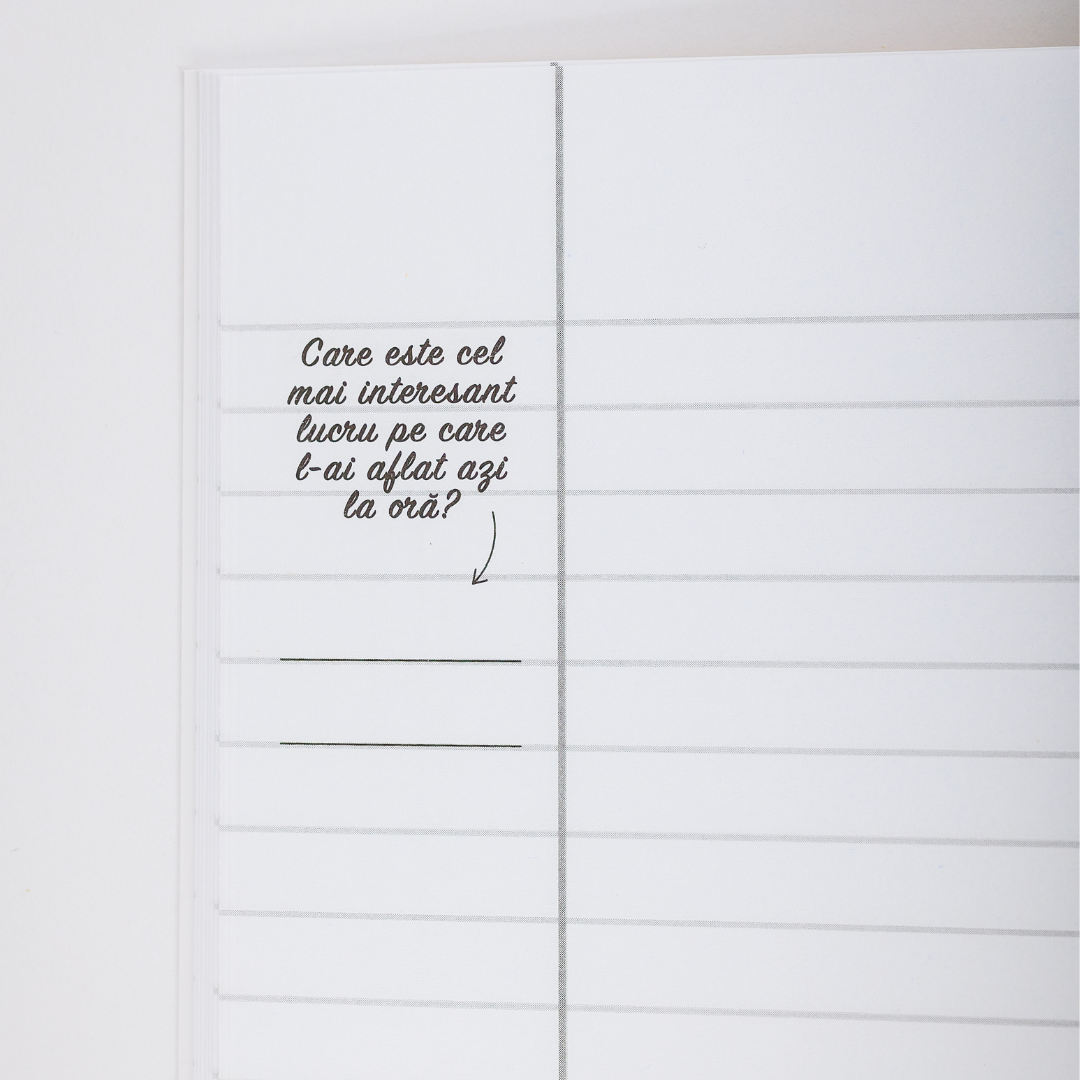 Care este cel
mai interesant
lucru pe care
l-ai aflat azi
la oră?